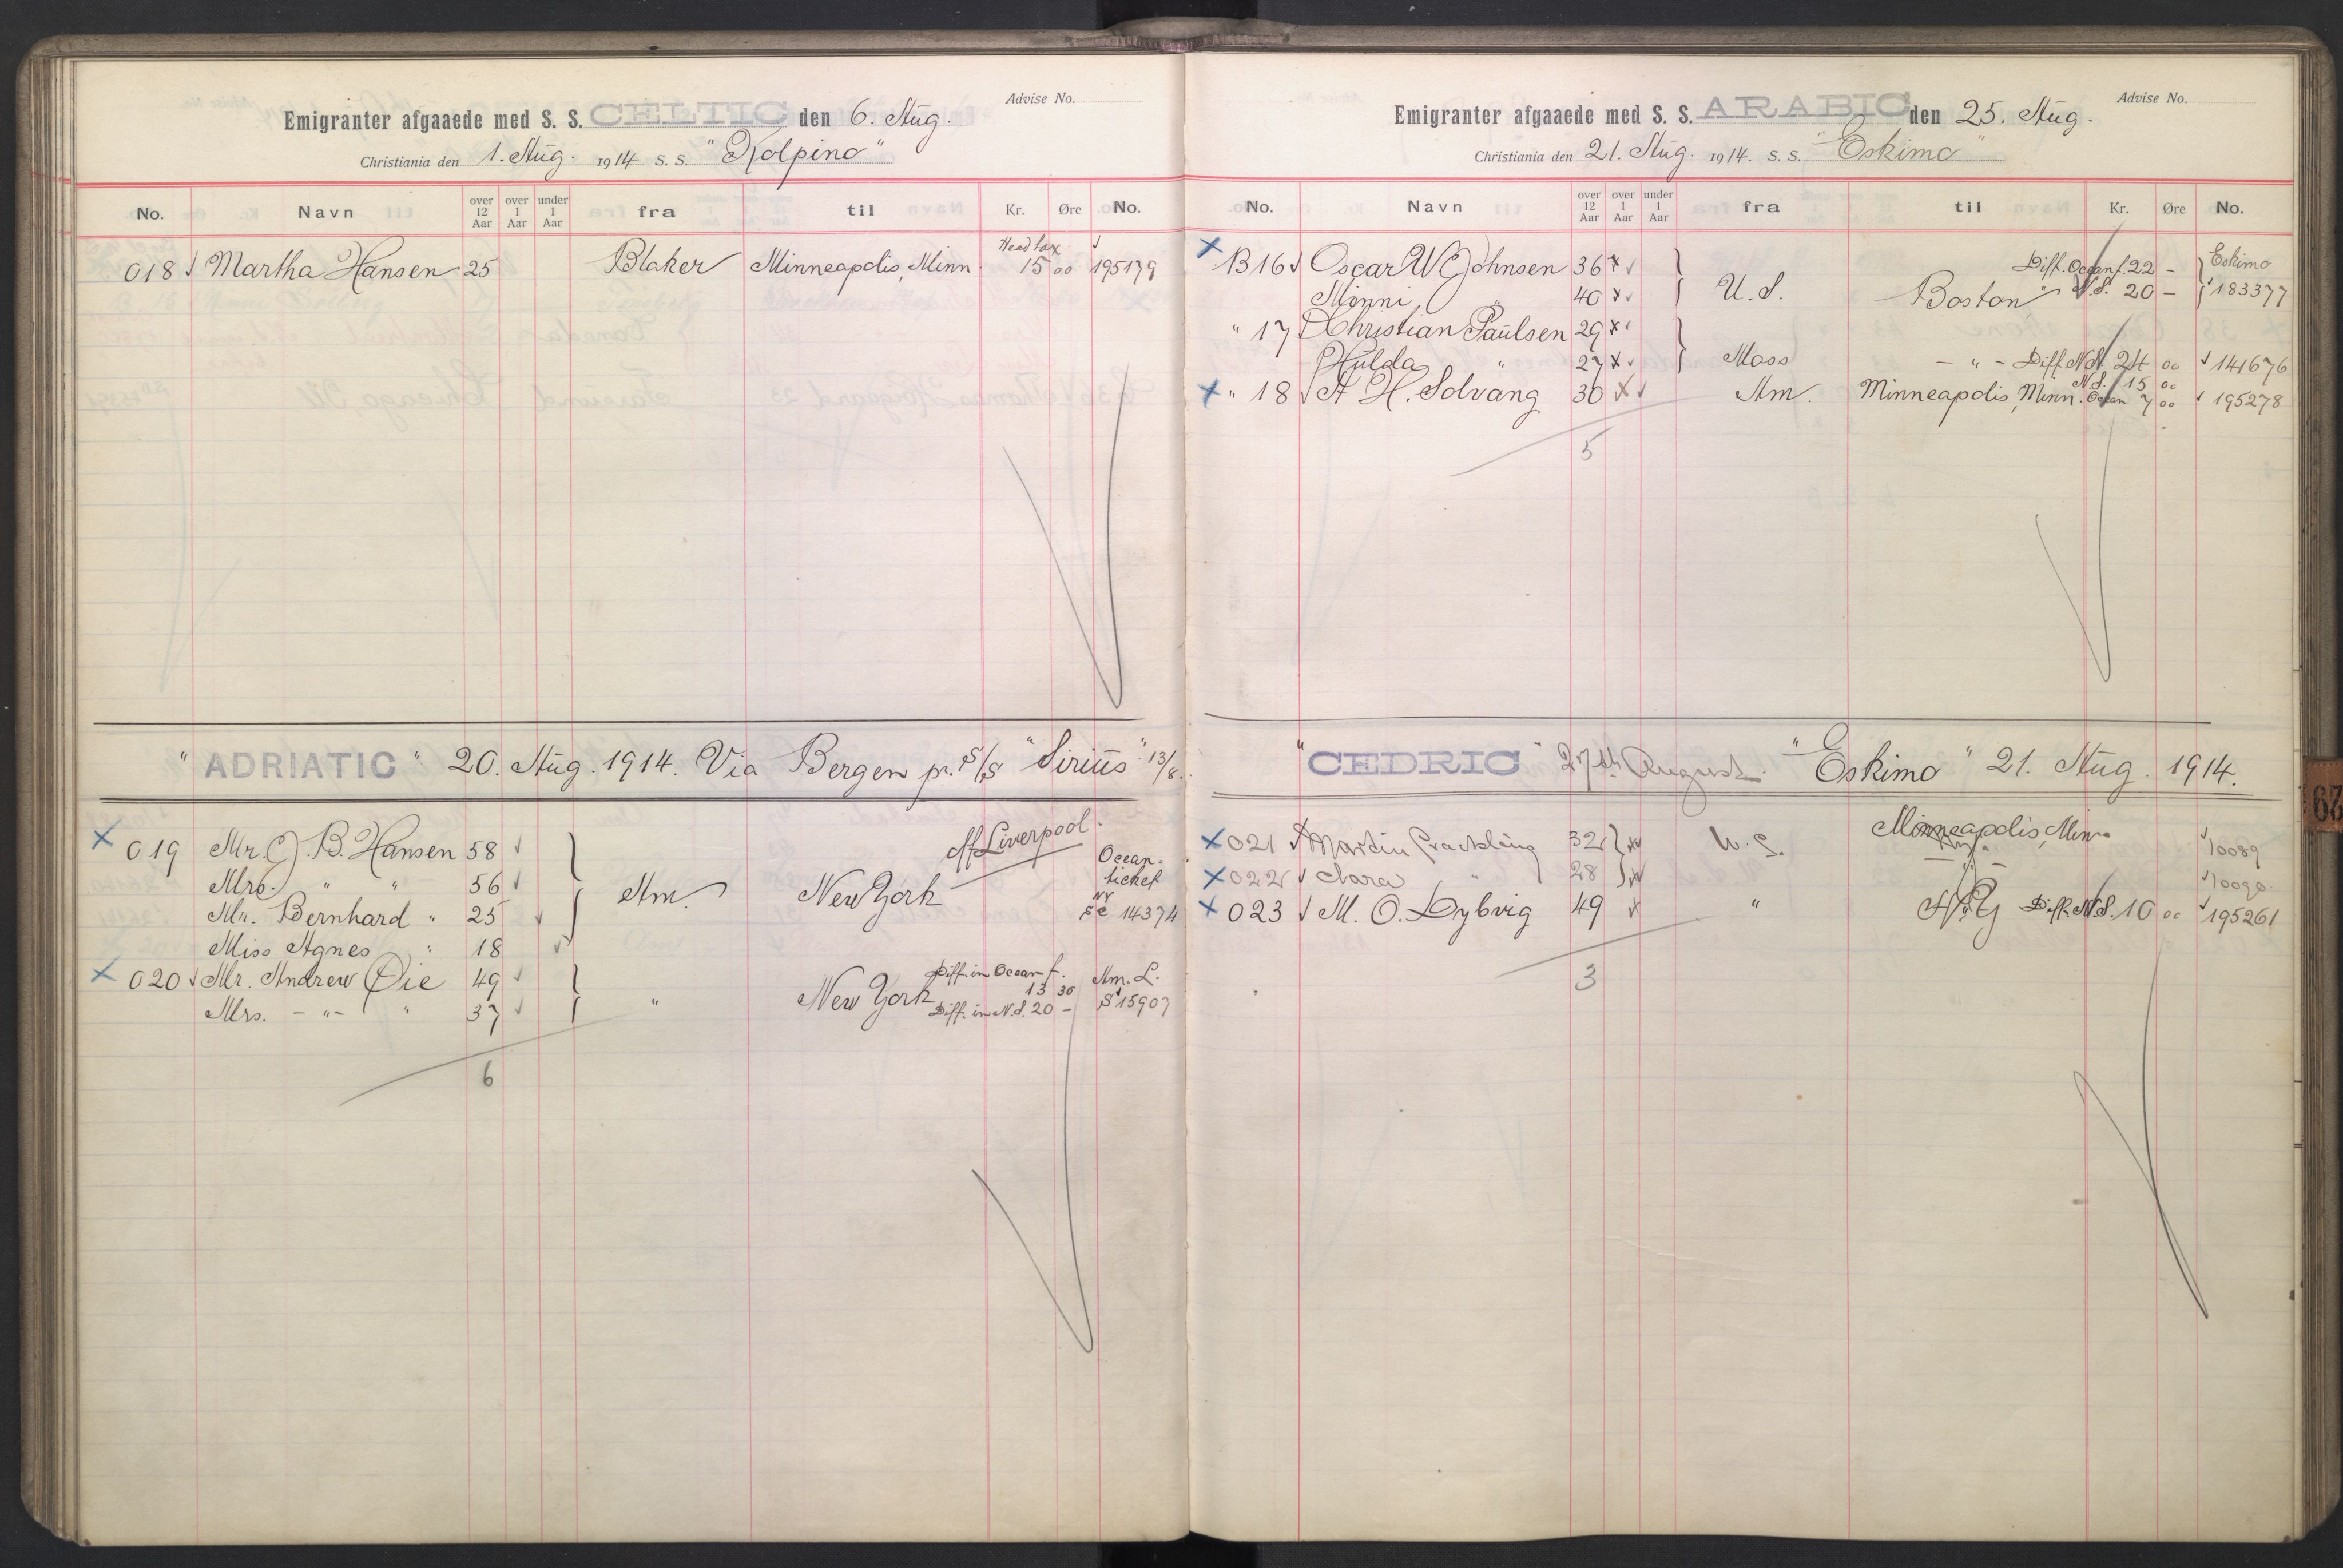 Advise No.
Emigranter afgaaede med S. S. CELTIC den 6. Aug.
Christiania den 1. Aug. 1914 S. S. "Kolpino"
No. Navn over 12 Aar over 1 Aar under 1 Aar fra til Kr. Øre No.
Head tax
018 Martha Hansen 25 Blaker Minneapolis, Minn. 15 00 195179
"ADRIATIC" 20. Aug. 1914. Via Bergen pr. S/S "Sirius" 13/8.
af Liverpool.
019 Mr. J. B. Hansen 58 Ocean-
Mrs. " " 56 Am. New York ticket
Mr. Bernhard " 25 14374
Miss Agnes " 18
020 Mr. Andrew Øie 49 Diff. in Ocean f. 13 30 Am. L.
Mrs. - " - " 37 " New York Diff. in N.S. 20 - S 15907
6
Advise No.
Emigranter afgaaede med S. S. ARABIC den 25. Aug.
Christiania den 21. Aug. 1914. S. S. "Eskimo"
No. Navn over 12 Aar over 1 Aar under 1 Aar fra til Kr. Øre No.
B16 Oscar W. Johnsen 36 Diff. Ocean f. 22 - Eskimo
Minni " 40 U.S. Boston " N.S. 20 - 183377
" 17 Christian Paulsen 29
Hulda " 27 Moss - " - Diff. N.S. 24 00 141676
" 18 A. H. Solvang 30 Am. Minneapolis, Minn. N.S. 15 00
Ocean 7 00 195278
5
"CEDRIC" 27th August. "Eskimo" 21. Aug. 1914.
021 Martin 32 U.S. Minneapolis, Minn. 10089
022 Clara " 28 - " - 10090
023 M. O. Dybvig 49 " N.Y. Diff. N.S. 10 00 195261
3